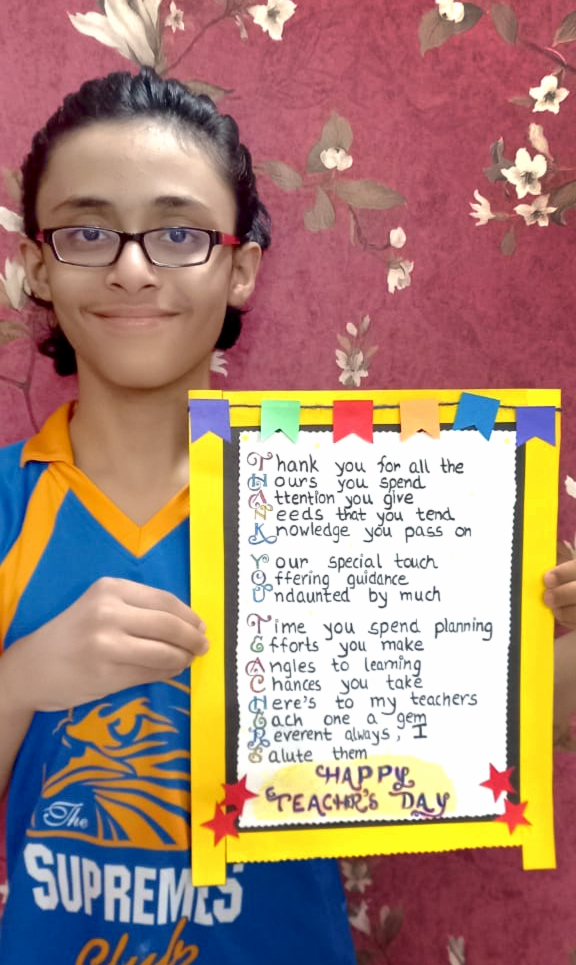 Thank you for all the
Hours you spend
Attention you give
Needs that you tend
Knowledge you pass on
Your special touch
Offering guidance
Undaunted by much
Time you spend planning
Efforts you make
Angles to learning
Chances you take
Here's to my teachers
Each one a gem
Reverent always, I
Salute them
HAPPY
TEACHER'S DAY
The
SUPREMES
Club